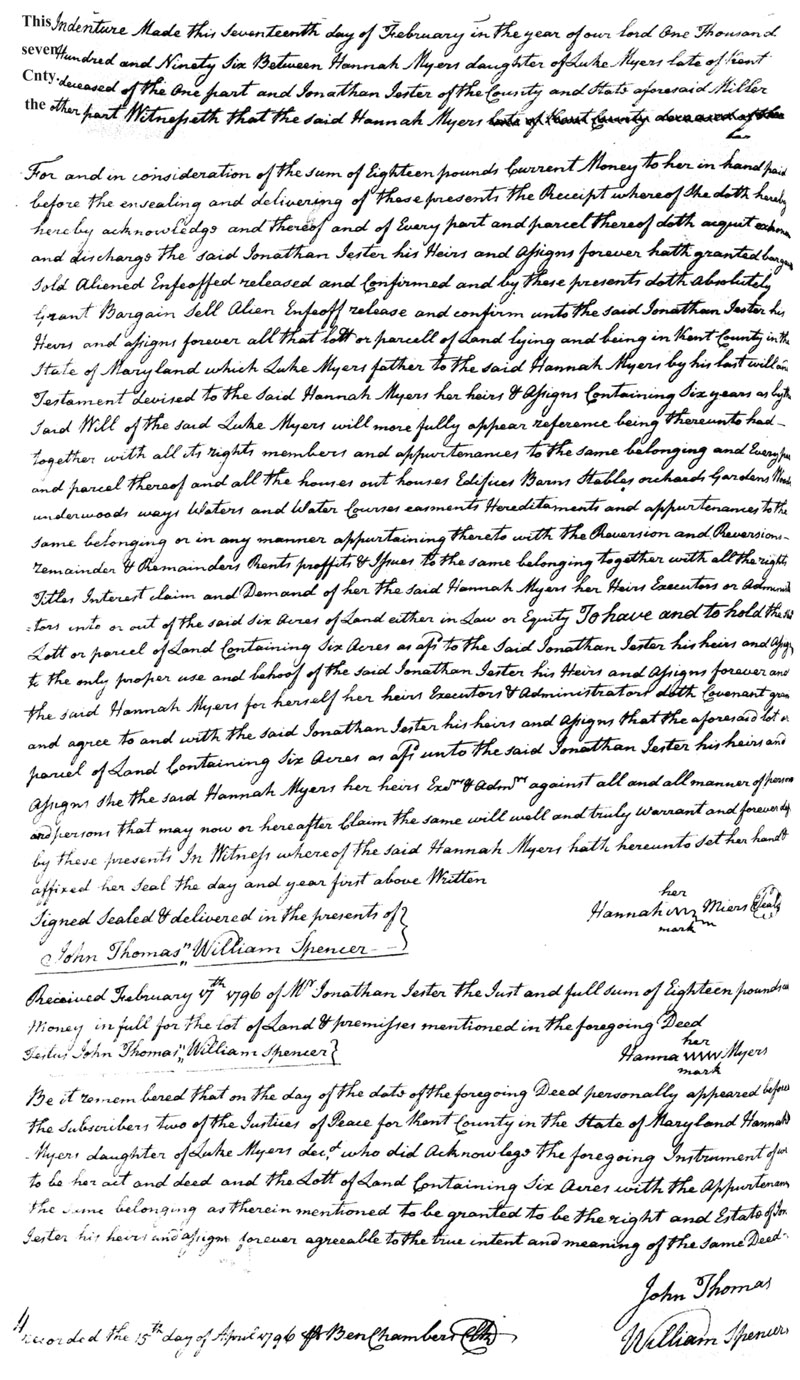 This Indenture Made this Seventeenth day of February in the year of our lord One Thousand
seven Hundred and Ninety Six Between Hannah Myers daughter of Luke Myers late of Kent
Cnty. deceased of the One part and Jonathan Jester of the County and State aforesaid Miller
the other part Witnesseth that the said Hannah Myers late of Kent County deceased of the
For and in consideration of the sum of Eighteen pounds Current Money to her in hand paid
before the ensealing and delivering of these presents the Receipt whereof She doth hereby
hereby acknowledge and thereof and of Every part and parcel thereof doth acquit
and discharge the said Jonathan Jester his Heirs and Assigns forever hath granted
Sold Aliened Enfeoffed released and Confirmed and by these presents doth Absolutely
Grant Bargain Sell Alien Enfeoff release and confirm unto the said Jonathan Jester his
Heirs and assigns forever all that lott or parcell of Land lying and being in Kent County in the
State of Maryland which Luke Myers father to the said Hannah Myers by his last will
Testament devised to the said Hannah Myers her heirs & Assigns Containing Six years as by
Said Will of the said Luke Myers will more fully appear reference being thereunto had
together with all its rights members and appurtenances to the same belonging and Every
and parcel thereof and all the houses out houses Edifices Barns Stables orchards Gardens
underwoods ways Waters and Water Courses easments Hereditaments and appurtenances to the
same belonging or in any manner appurtaining thereto with the Reversion and Reversions
remainder & Remainders Rents proffits & Issues to the same belonging together with all the rights
Titles Interest claim and Demand of her the said Hannah Myers her Heirs Executors or Administra
=tors into or out of the said Six Acres of Land either in Law or Equity To have and to hold the
Lott or parcel of Land Containing Six Acres as afs to the Said Jonathan Jester his heirs and
to the only proper use and behoof of the said Jonathan Jester his Heirs and Assigns forever and
the said Hannah Myers for herself her heirs Executors & Administrators doth Covenant
and agree to and with the said Jonathan Jester his heirs and Assigns that the aforesaid lot or
parcel of Land Containing Six Acres as afs unto the said Jonathan Jester his heirs and
Assigns She the said Hannah Myers her heirs Exōrs & Admrs against all and all manner of person
and persons that may now or hereafter Claim the same will well and truly Warrant and forever
by these presents In Witness whereof the said Hannah Myers hath hereunto set her hand &
affixed her Seal the day and year first above Written
Signed Sealed & delivered in the presents of
her
Hannah Miers Seal
mark
John Thomas " William Spencer
Received February 17th 1796 of Mr Jonathan Jester the Just and full sum of Eighteen pounds
Money in full for the lot of Land & premisses mentioned in the foregoing Deed
Testus John Thomas " William Spencer
her
Hanna Myers
mark
Be it remembered that on the day of the date of the foregoing Deed personally appeared before
the Subscribers two of the Justices of Peace for Kent County in the State of Maryland Hannah
Myers daughter of Luke Myers decd who did Acknowlege the foregoing Instrument of
to be her act and deed and the Lott of Land Containing Six Acres with the
the same belonging as therein mentioned to be granted to be the right and Estate of
Jester his heirs and assigns forever agreeable to the true intent and meaning of the same Deed
John Thomas
William Spencer
Recorded the 15th day of April 1796 Ben Chambers Clk